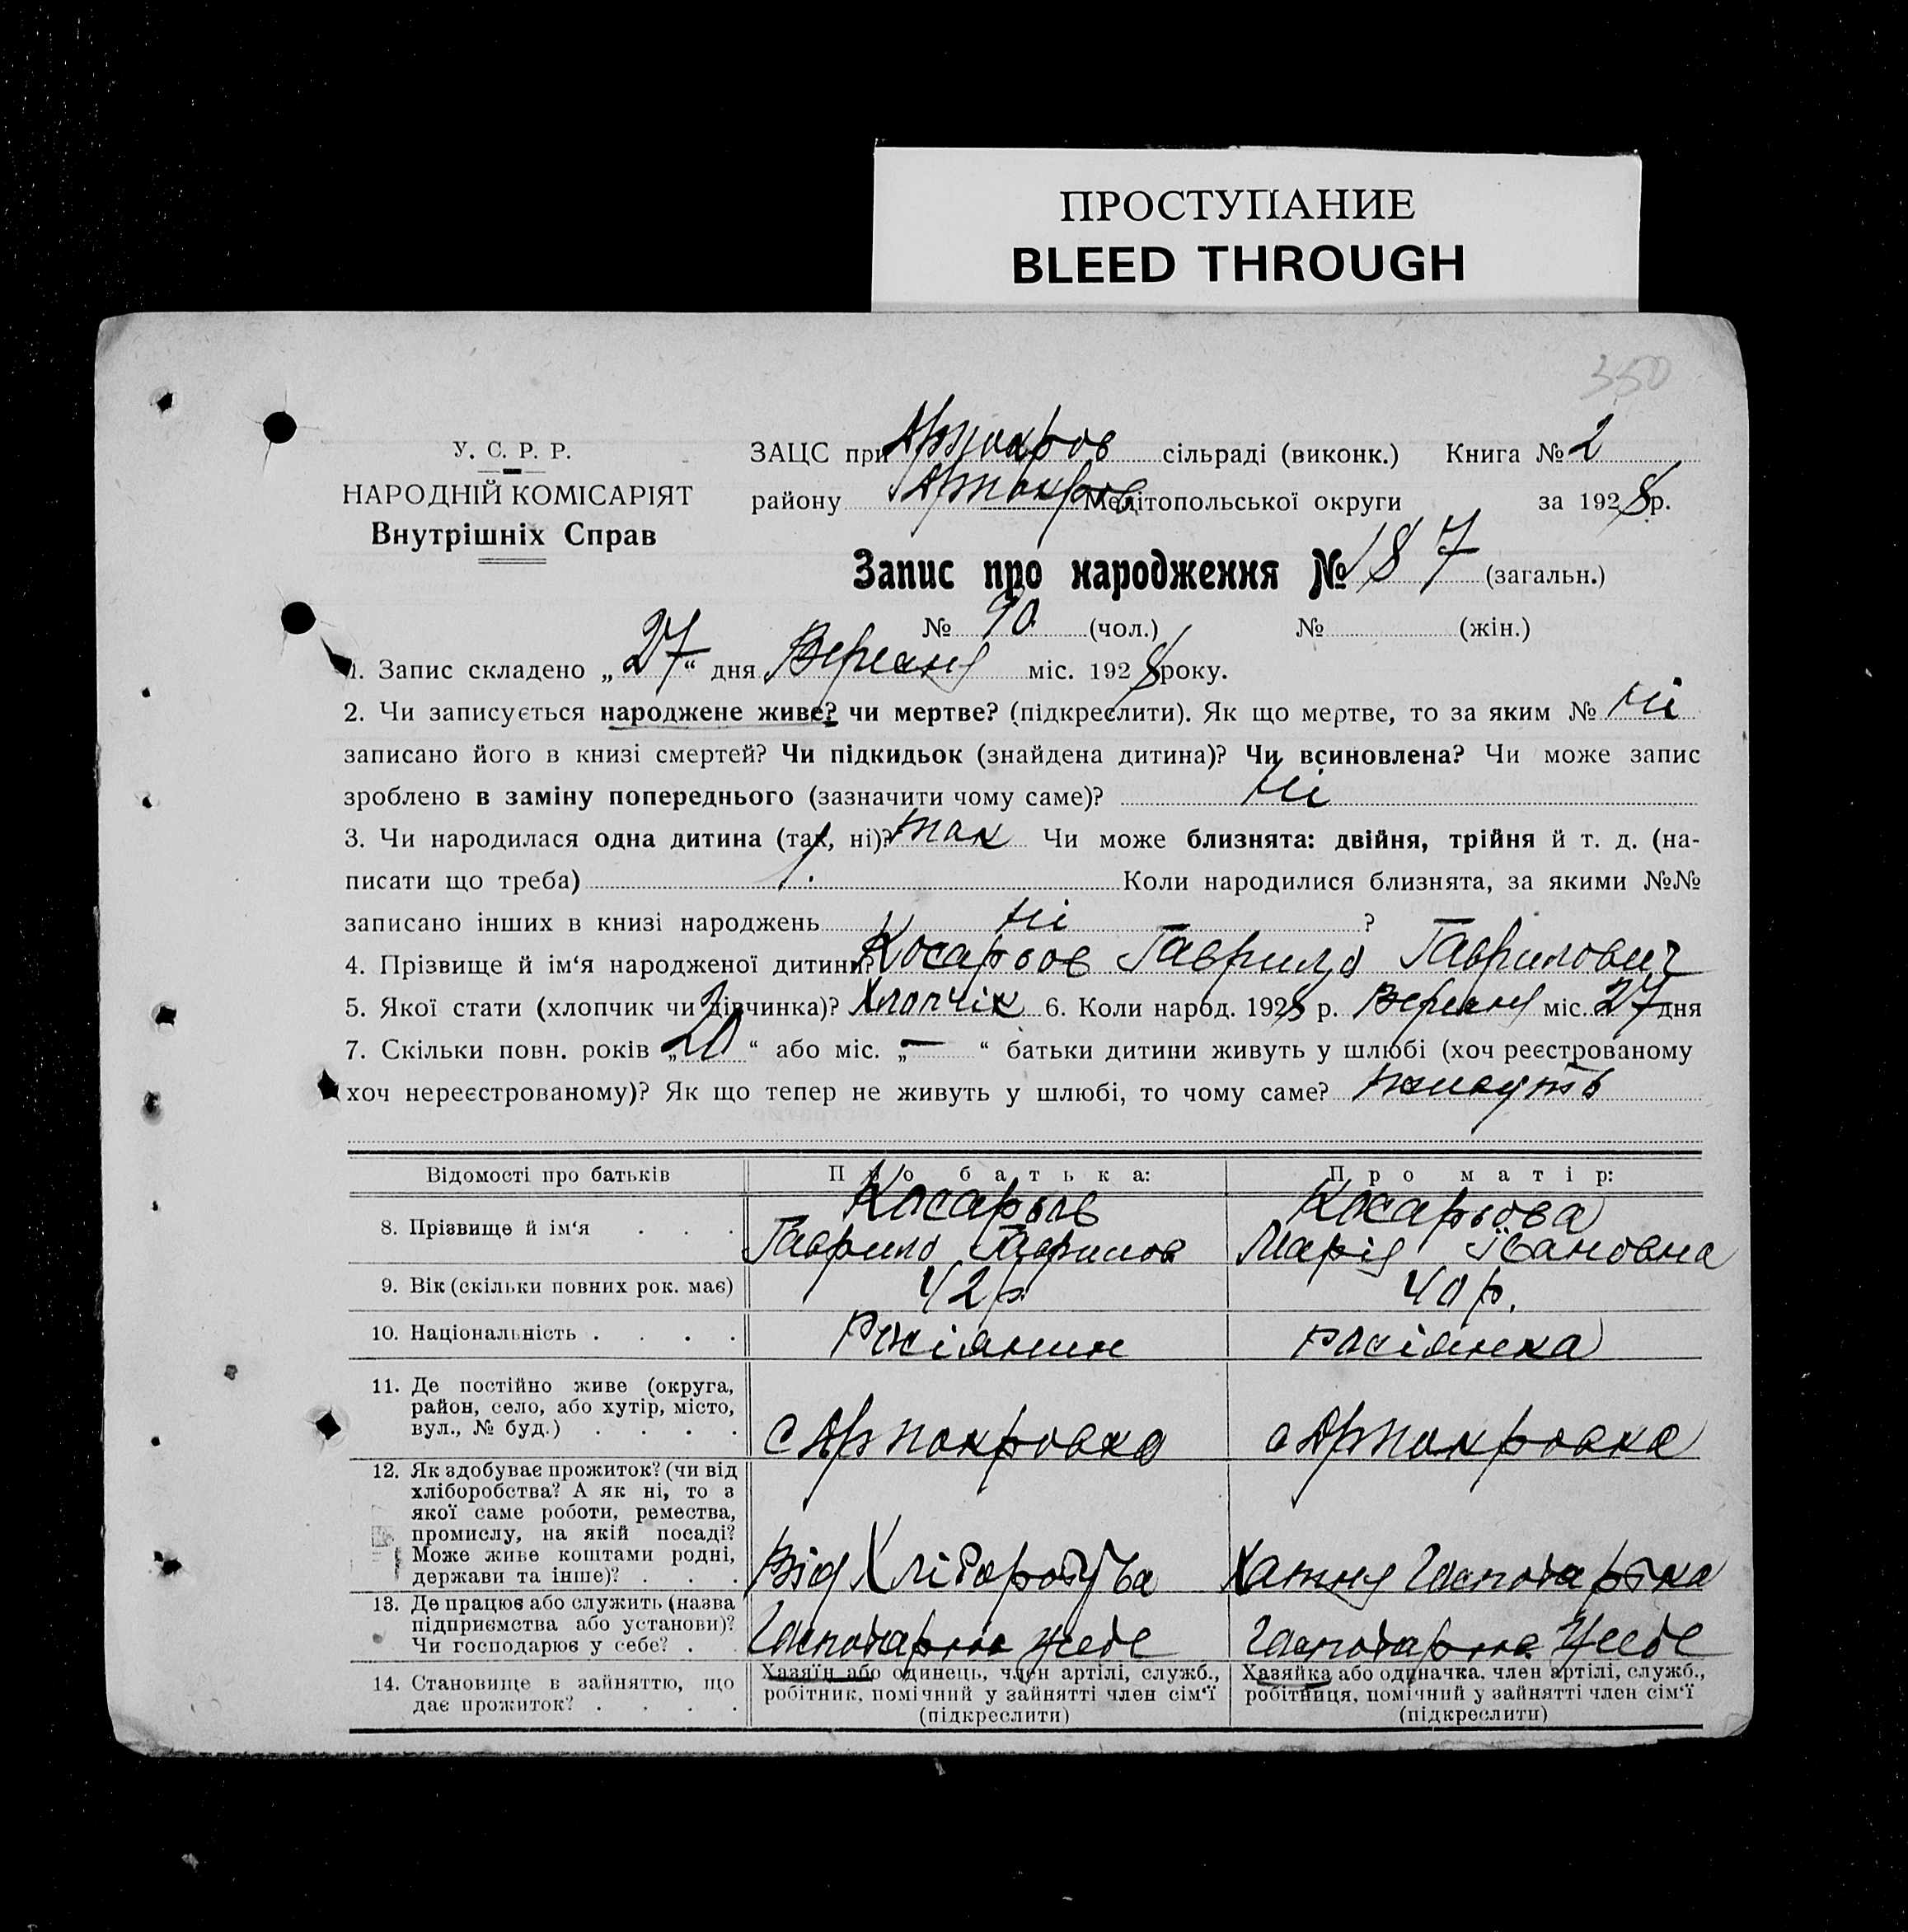 ПРОСТУПАНИЕ
BLEED THROUGH
350
У. С. Р. Р.
НАРОДНІЙ КОМІСАРІЯТ
Внутрішніх Справ
ЗАЦС при Арпокров сільраді (виконк.) Книга № 2
району Арпокров Мелітопольської округи за 1928 р.
Запис про народження № 187 (загальн.)
№ 90 (чол.) № (жін.)
1. Запис складено „27“ дня Вересня міс. 1928 року.
2. Чи записується народжене живе? чи мертве? (підкреслити). Як що мертве, то за яким № Ні
записано його в книзі смертей? Чи підкидьок (знайдена дитина)? Чи всиновлена? Чи може запис
зроблено в заміну попереднього (зазначити чому саме)? Ні
3. Чи народилася одна дитина (так, ні)? так Чи може близнята: двійня, трійня й т. д. (на-
писати що треба) Коли народилися близнята, за якими №№
записано інших в книзі народжень Ні ?
4. Прізвище й ім‘я народженої дитини? Косарьов Гаврило Гаврилович
5. Якої стати (хлопчик чи дівчинка)? Хлопчік 6. Коли народ. 1928 р. Вересня міс. 27 дня
7. Скільки повн. років „20“ або міс. „—“ батьки дитини живуть у шлюбі (хоч реєстрованому
хоч нереєстрованому)? Як що тепер не живуть у шлюбі, то чому саме? живуть
Відомості про батьків Про батька: Про матір:
8. Прізвище й ім‘я . . . Косарьов Гаврило Гаврилов Косарьова Марія Івановна
9. Вік (скільки повних рок. має) 42 р. 40 р.
10. Національність . . . . Росіянин росіянка
11. Де постійно живе (округа,
район, село, або хутір, місто,
вул., № буд.) . . . . с Арпокровка с Арпокровка
12. Як здобуває прожиток? (чи від
хліборобства? А як ні, то з
якої саме роботи, ремества,
промислу, на якій посаді?
Може живе коштами родні,
держави та інше)? . . . Від Хліборобства Хатня Господарка
13. Де працює або служить (назва
підприємства або установи)?
Чи господарює у себе? . . Господарює у себе Господарює у себе
14. Становище в зайняттю, що
дає прожиток? . . . .
Хазяїн або одинець, член артілі, служб.,
робітник, помічний у зайнятті член сім‘ї
(підкреслити)
Хазяйка або одиначка, член артілі, служб.,
робітниця, помічний у зайнятті член сім‘ї
(підкреслити)